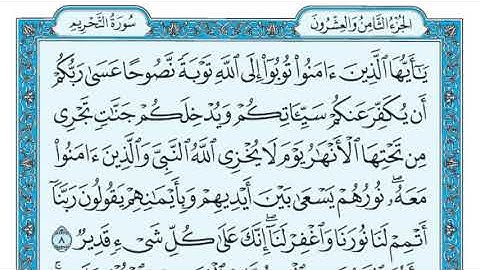 الجزء الثامن والعشرون
سورة التحريم
يَٰٓأَيُّهَا ٱلَّذِينَ ءَامَنُوا۟ تُوبُوٓا۟ إِلَى ٱللَّهِ تَوْبَةً نَّصُوحًا عَسَىٰ رَبُّكُمْ
أَن يُكَفِّرَ عَنكُمْ سَيِّـَٔاتِكُمْ وَيُدْخِلَكُمْ جَنَّٰتٍ تَجْرِى
مِن تَحْتِهَا ٱلْأَنْهَٰرُ يَوْمَ لَا يُخْزِى ٱللَّهُ ٱلنَّبِىَّ وَٱلَّذِينَ ءَامَنُوا۟
مَعَهُۥ ۖ نُورُهُمْ يَسْعَىٰ بَيْنَ أَيْدِيهِمْ وَبِأَيْمَٰنِهِمْ يَقُولُونَ رَبَّنَآ
أَتْمِمْ لَنَا نُورَنَا وَٱغْفِرْ لَنَآ ۖ إِنَّكَ عَلَىٰ كُلِّ شَىْءٍ قَدِيرٌ ٨